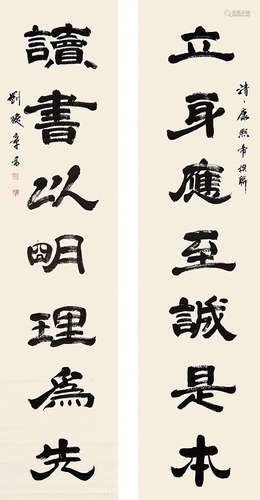 立身應至誠是本
清·康熙帝撰聯
讀書以明理為先
劉炳森書